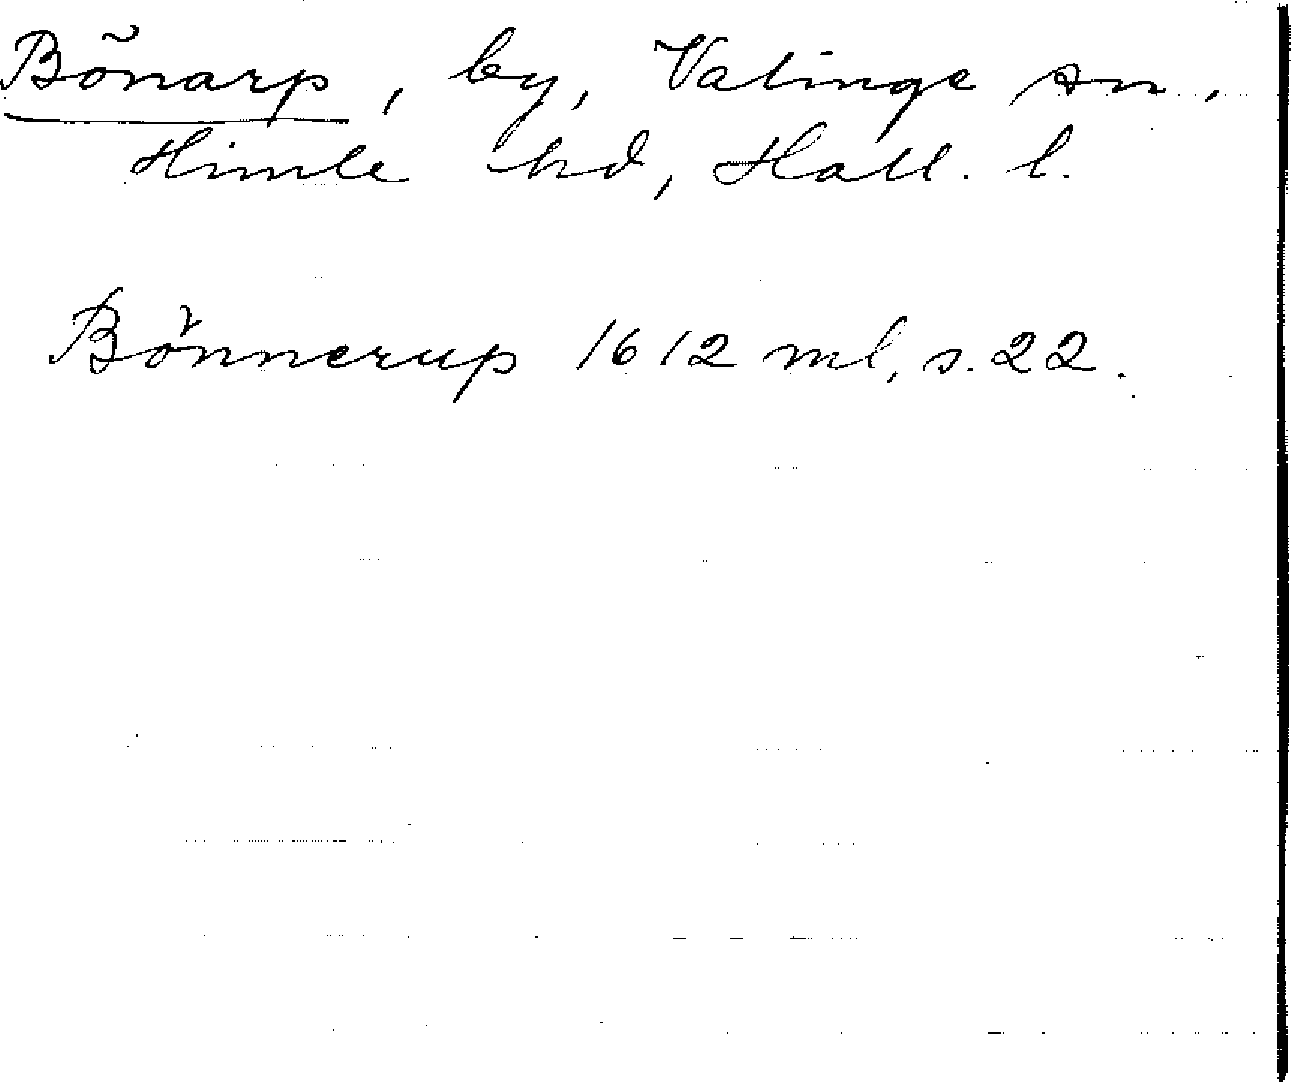 Bönarp, by, Valinge sn,
Himle hd, Hall. l.
Bönnerup 1612 ml, s. 22.